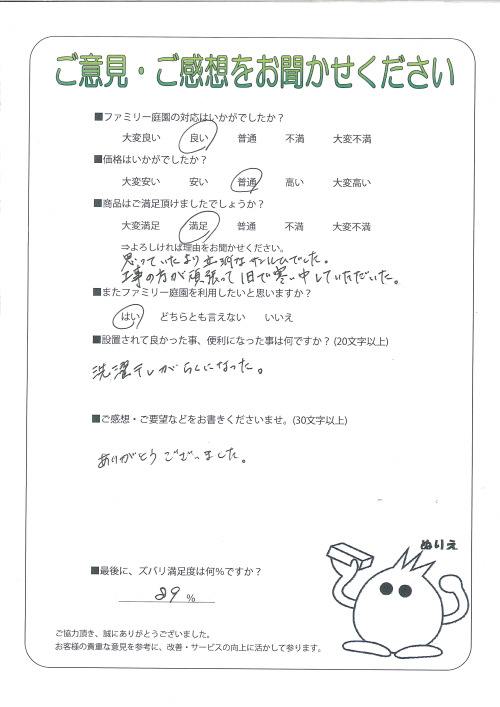 ご意見・ご感想をお聞かせください
■ファミリー庭園の対応はいかがでしたか？
大変良い 良い 普通 不満 大変不満
■価格はいかがでしたか？
大変安い 安い 普通 高い 大変高い
■商品はご満足頂けましたでしょうか？
大変満足 満足 普通 不満 大変不満
⇒よろしければ理由をお聞かせください。
思っていたより立派な でした。
工事の方が頑張って1日で寒い中していただいた。
■またファミリー庭園を利用したいと思いますか？
はい どちらとも言えない いいえ
■設置されて良かった事、便利になった事は何ですか？(20文字以上)
洗濯干しがらくになった。
■ご感想・ご要望などをお書きくださいませ。(30文字以上)
ありがとうございました。
ぬりえ
■最後に、ズバリ満足度は何％ですか？
89 %
ご協力頂き、誠にありがとうございました。
お客様の貴重な意見を参考に、改善・サービスの向上に活かして参ります。